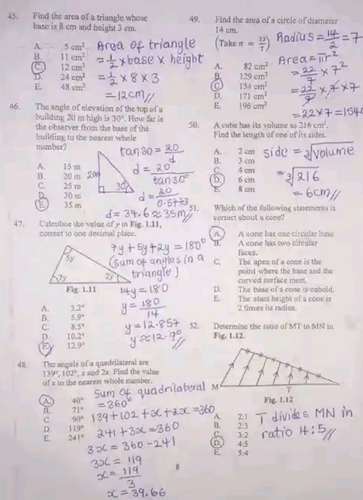 45. Find the area of a triangle whose
base is 8 cm and height 3 cm.
A. 5 cm²
B. 11 cm²
C. 12 cm²
D. 24 cm²
E. 48 cm²
Area of triangle
= ½ x base x height
= ½ x 8 x 3
= 12cm//
46. The angle of elevation of the top of a
building 20 m high is 30°. How far is
the observer from the base of the
building to the nearest whole
number?
A. 15 m
B. 20 m
C. 25 m
D. 30 m
E. 35 m
20m
30°
d
tan30 = 20/d
d = 20/tan30°
d = 20/0.5773
d = 34.6 ≈ 35m//
47. Calculate the value of y in Fig. 1.11,
correct to one decimal place.
5y
7y
2y
Fig. 1.11
A. 3.2°
B. 5.9°
C. 8.5°
D. 10.2°
E. 12.9°
7y + 5y + 2y = 180°
(sum of angles in a
triangle)
14y = 180
y = 180/14
y = 12.857
y ≈ 12.9°//
48. The angles of a quadrilateral are
139°, 102°, x and 2x. Find the value
of x to the nearest whole number.
A. 40°
B. 71°
C. 90°
D. 119°
E. 241°
Sum of quadrilateral
= 360°
139 + 102 + x + 2x = 360
241 + 3x = 360
3x = 360 - 241
3x = 119
x = 119/3
x = 39.66
49. Find the area of a circle of diameter
14 cm.
(Take π = 22/7)
Radius = 14/2 = 7
A. 82 cm²
B. 129 cm²
C. 154 cm²
D. 171 cm²
E. 196 cm²
Area = πr²
= 22/7 x 7²
= 22/7 x 7 x 7
= 22 x 7 = 154
50. A cube has its volume as 216 cm³.
Find the length of one of its sides.
A. 2 cm
B. 3 cm
C. 4 cm
D. 6 cm
E. 8 cm
side = ∛volume
= ∛216
= 6cm//
51. Which of the following statements is
correct about a cone?
A. A cone has one circular base
B. A cone has two circular
faces.
C. The apex of a cone is the
point where the base and the
curved surface meet.
D. The base of a cone is cuboid.
E. The slant height of a cone is
2 times its radius.
52. Determine the ratio of MT to MN in
Fig. 1.12.
M
T
Fig. 1.12
A. 2:1
B. 2:3
C. 3:2
D. 4:5
E. 5:4
T divides MN in
ratio 4:5//
8